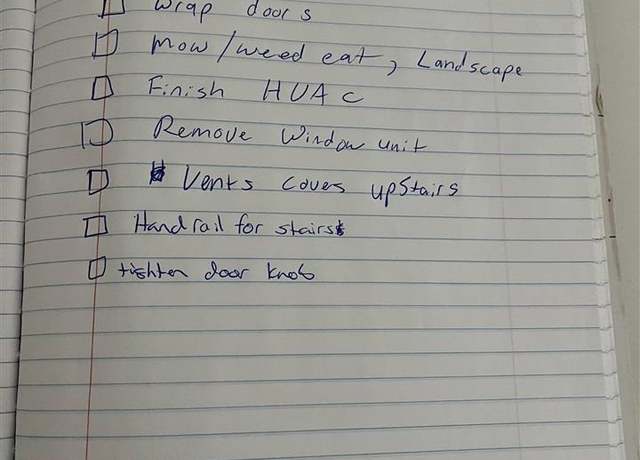 Wrap doors
Mow/weed eat, Landscape
Finish HVAC
Remove Window unit
Vents coves upstairs
Handrail for stairs
tishten door knob